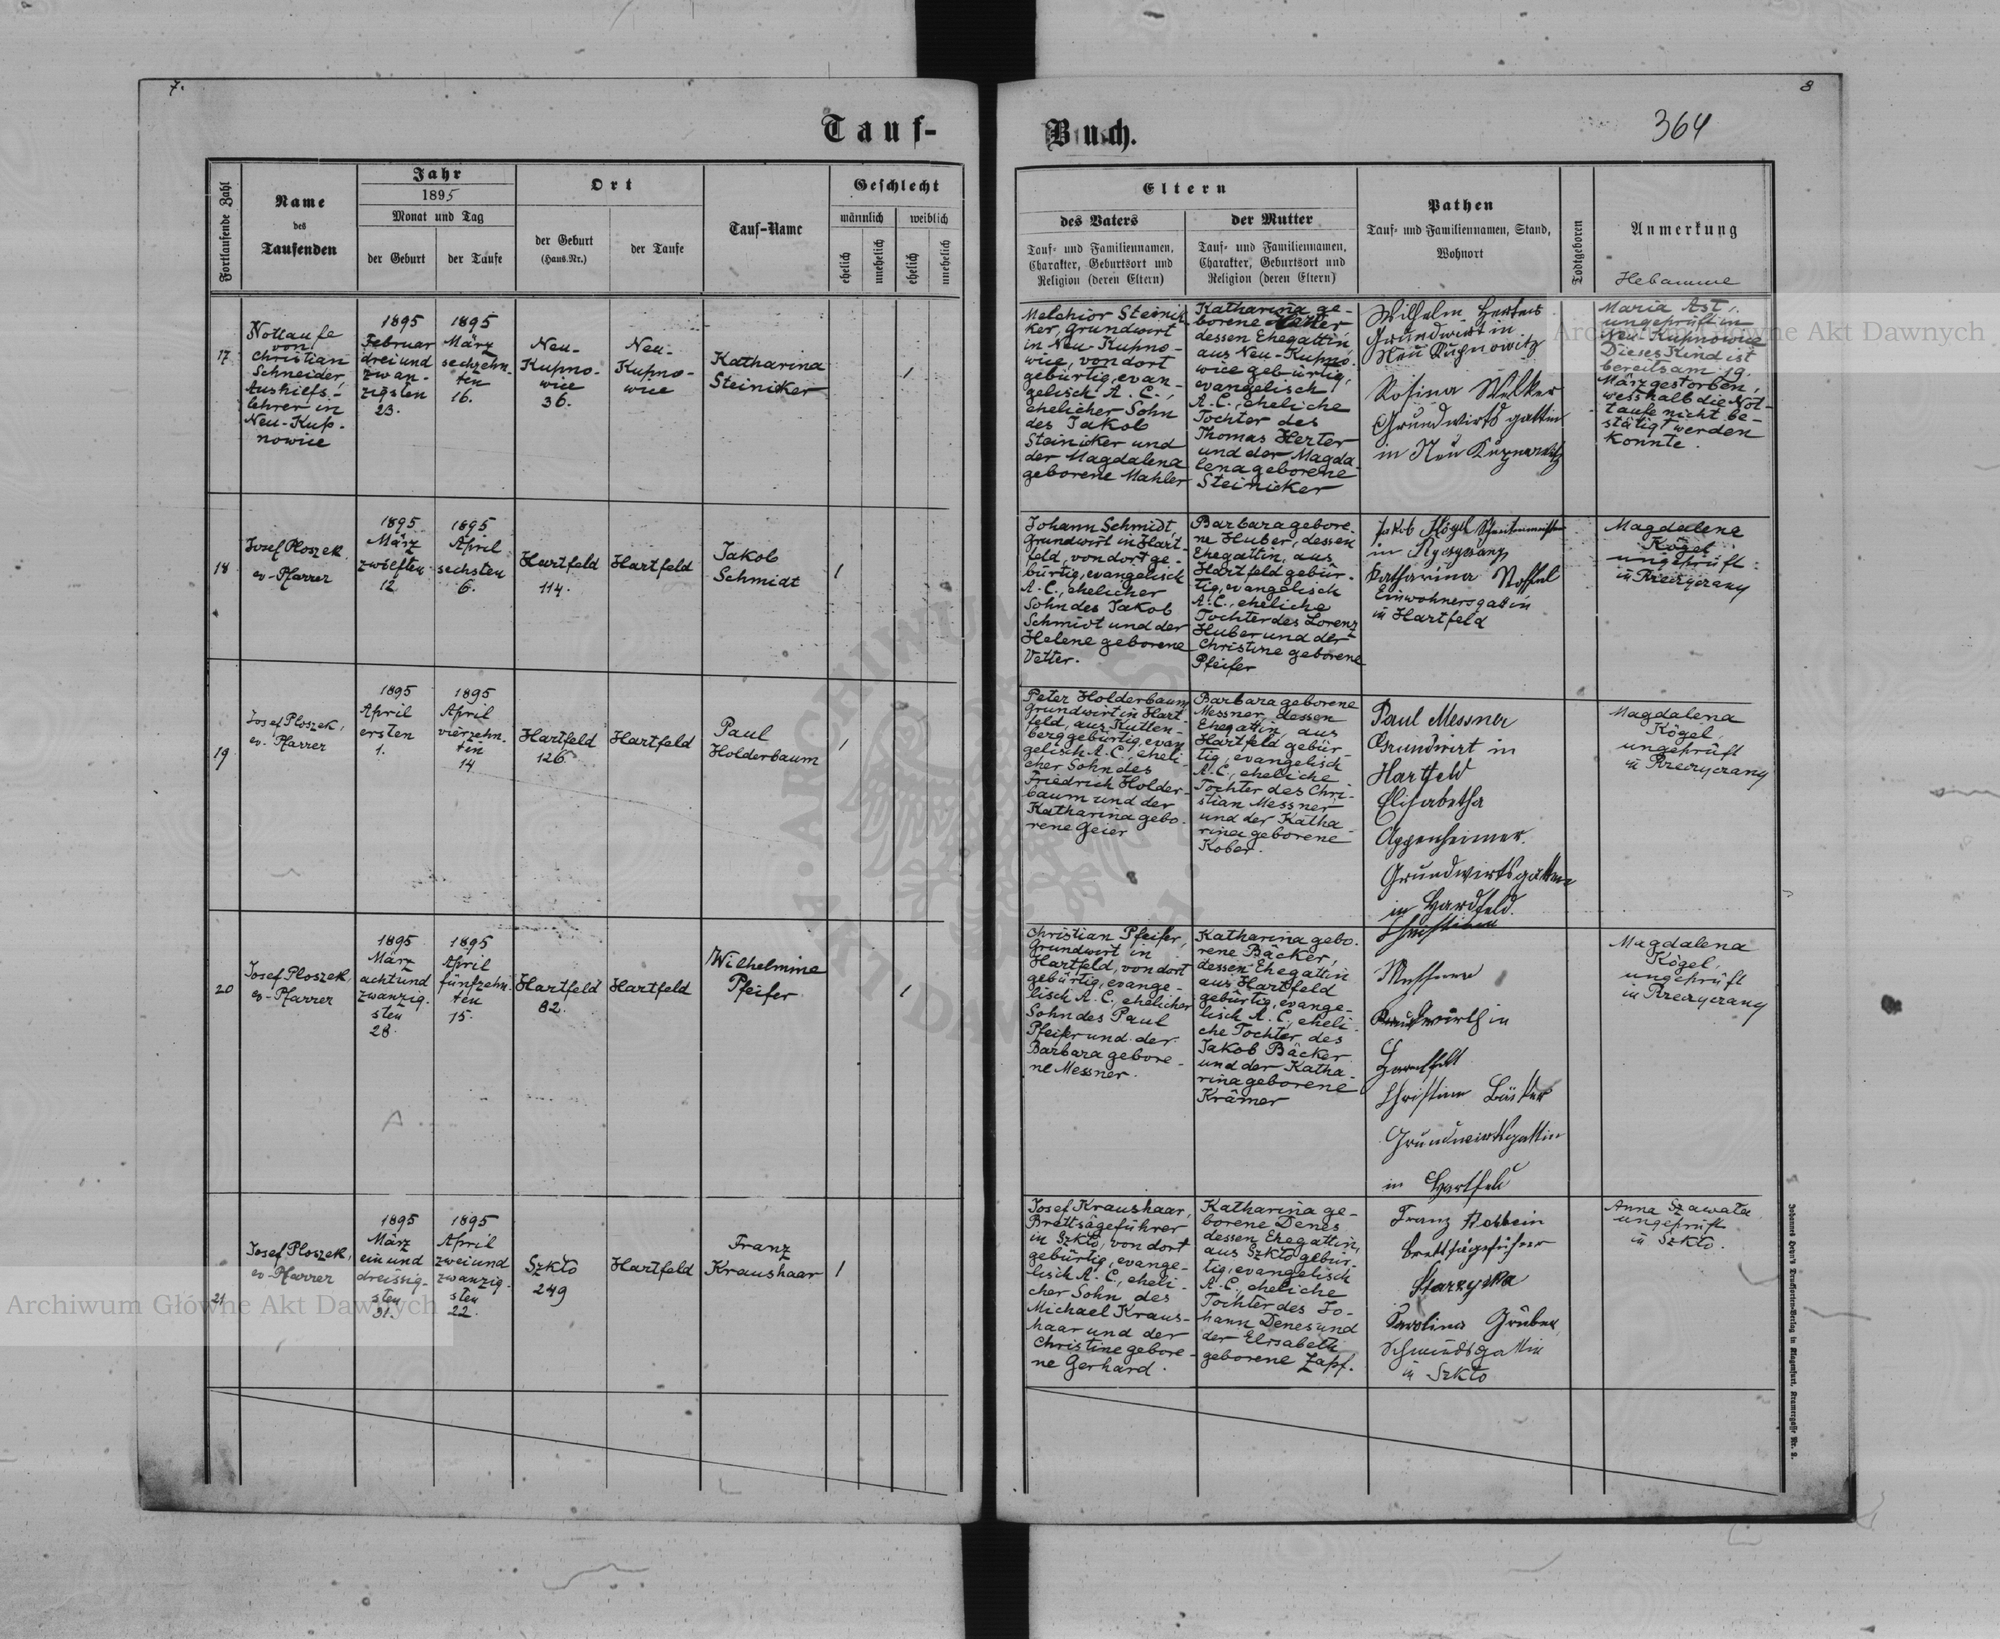 7.
8
364
Tauf-
Buch.
Fortlaufende Zahl
Name
des
Taufenden
Jahr
1895
Monat und Tag
der Geburt
der Taufe
Ort
der Geburt
(Haus-Nr.)
der Taufe
Tauf-Name
Geschlecht
männlich
weiblich
ehelich
unehelich
ehelich
unehelich
Eltern
des Vaters
Tauf- und Familiennamen,
Charakter, Geburtsort und
Religion (deren Eltern)
der Mutter
Tauf- und Familiennamen,
Charakter, Geburtsort und
Religion (deren Eltern)
Pathen
Tauf- und Familiennamen, Stand,
Wohnort
Todtgeboren
Anmerkung
Hebamme
17
Nottaufe
von
Christian
Schneider,
Aushilfs-
lehrer in
Neu-Kup-
nowice
1895
Februar
drei und
zwan-
zigsten
23.
1895
März
sechzehn-
ten
16.
Neu-
Kupno-
wice
36.
Neu-
Kupno-
wice
Katharina
Steinicker
1
Melchior Steinik
ker, Grundwirt
in Neu-Kupno-
wice, von dort
gebürtig, evan-
gelisch A. C.,
ehelicher Sohn
des Jakob
Steinicker und
der Magdalena
geborene Mahler
Katharina ge-
borene Herter
dessen Ehegattin
aus Neu-Kupno-
wice gebürtig,
evangelisch
A. C., eheliche
Tochter des
Thomas Herter
und der Magda-
lena geborene
Steinicker
Wilhelm
Grundwirt in
Rosina Welker
Grundwirts gattin
in Neu
Maria Ast,
ungeprüft in
Neu-Kupnowice
Dieses Kind ist
bereits am 19.
März gestorben,
wesshalb die Not-
taufe nicht be-
stätigt werden
konnte.
18
Josef Ploszek
ev-Pfarrer
1895
März
zwölften
12
1895
April
sechsten
6.
Hartfeld
114.
Hartfeld
Jakob
Schmidt
1
Johann Schmidt,
Grundwirt in Hart-
feld, von dort ge-
bürtig, evangelisch
A. C., ehelicher
Sohn des Jakob
Schmidt und der
Helene geborene
Vetter.
Barbara gebore-
ne Huber, dessen
Ehegattin, aus
Hartfeld gebür-
tig, evangelisch
A. C., eheliche
Tochter des Lorenz
Huber und der
Christine geborene
Pfeifer
Jakob Kögel
in
Katharina
Einwohnersgattin
in Hartfeld
Magdalena
Kögel
ungeprüft
in Rzeczyczany
19
Josef Ploszek,
ev. Pfarrer
1895
April
ersten
1.
1895
April
vierzehn-
ten
14
Hartfeld
126.
Hartfeld
Paul
Holderbaum
1
Peter Holderbaum
Grundwirt in Hart-
feld, aus Kutten-
berg gebürtig, evan
gelisch A. C., eheli-
cher Sohn des
Friedrich Holder-
baum und der
Katharina gebo-
rene Geier
Barbara geborene
Messner, dessen
Ehegattin, aus
Hartfeld gebür-
tig, evangelisch
A. C., eheliche
Tochter des Chri-
stian Messner
und der Katha-
rina geborene
Kober.
Paul Messner
Grundwirt in
Hartfeld
Elisabetha
Oppenheimer
Grundwirtsgattin
in Hardfeld.
Magdalena
Kögel,
ungeprüft
in Rzeczyczany
20
Josef Ploszek
ev-Pfarrer
1895
März
acht und
zwanzig-
sten
28.
1895
April
fünfzehn-
ten
15.
Hartfeld
82.
Hartfeld
Wilhelmine
Pfeifer
1
Christian Pfeifer,
Grundwirt in
Hartfeld, von dort
gebürtig, evange-
lisch A. C., ehelicher
Sohn des Paul
Pfeifer und der
Barbara gebore-
ne Messner.
Katharina gebo-
rene Bäcker,
dessen Ehegattin
aus Hartfeld
gebürtig, evange-
lisch A. C., eheli-
che Tochter des
Jakob Bäcker
und der Katha-
rina geborene
Krämer
Christian
Messner
Grundwirth in
Hartfeld
Christine Bäcker
Grundwirthsgattin
in Hartfeld
Magdalena
Kögel,
ungeprüft
in Rzeczyczany
21
Josef Ploszek,
ev-Pfarrer
1895
März
ein und
dreissig-
sten
31.
1895
April
zwei und
zwanzig-
sten
22.
Szkło
249
Hartfeld
Franz
Kraushaar
1
Josef Kraushaar,
Brettsägeführer
in Szkło, von dort
gebürtig, evange-
lisch A. C., eheli-
cher Sohn des
Michael Kraus-
haar und der
Christine gebore-
ne Gerhard.
Katharina ge-
borene Denes
dessen Ehegattin,
aus Szkło gebür-
tig, evangelisch
A. C., eheliche
Tochter des Jo-
hann Denes und
der Elisabeth
geborene Zapf.
Franz
Brettsägeführer
Starzyska
Karolina Gruber
Schmiedsgattin
in Szkło
Anna Szawała
ungeprüft
in Szkło.
Johannes Heyn's Drucksorten-Verlag in Klagenfurt, Kramergasse Nr. 2.
Archiwum Główne Akt Dawnych
Archiwum Główne Akt Dawnych